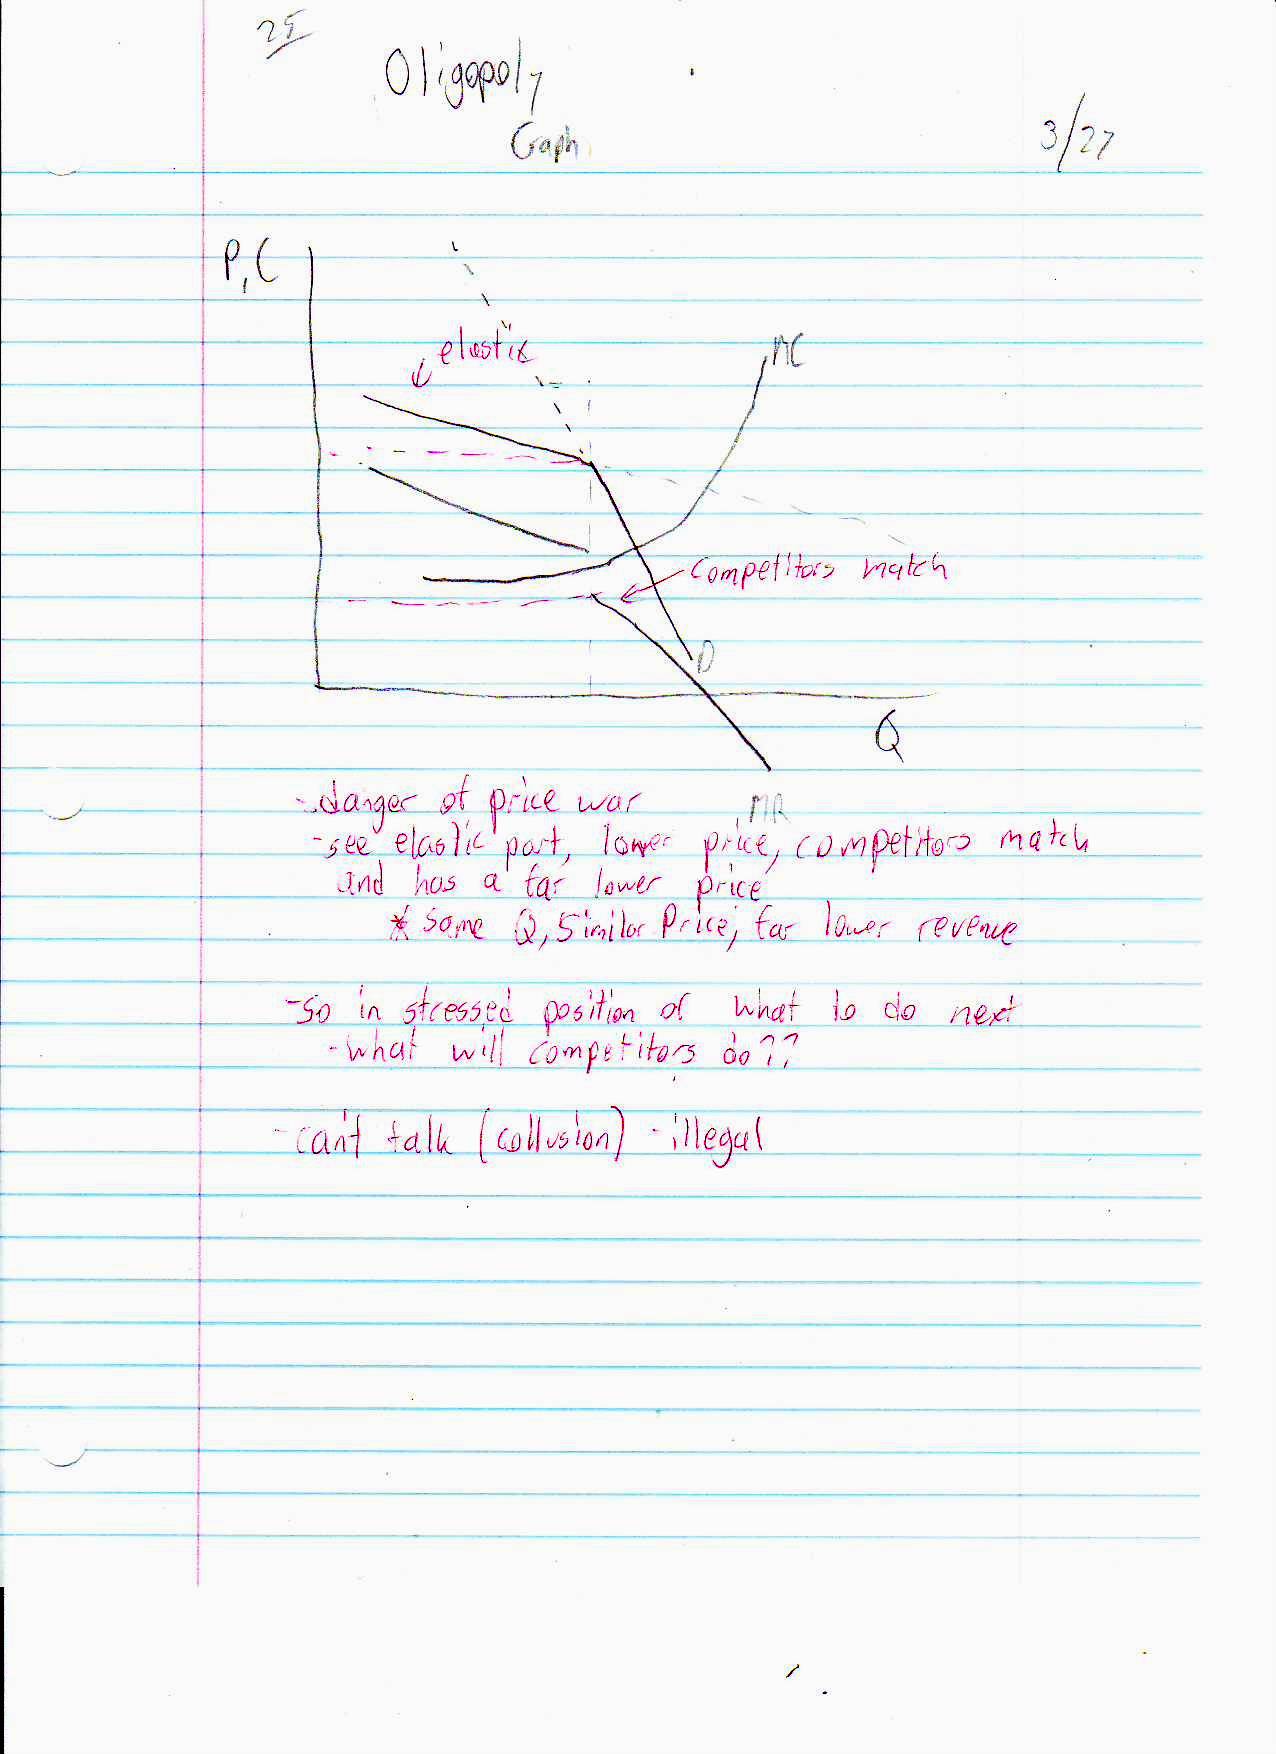 25
Oligopoly
Graph
3/27
P, C
elastic
MC
competitors match
D
Q
- danger of price war
MR
- see elastic part, lower price, competitors match
and has a far lower price
* Same Q, Similar Price, far lower revenue
- So in stressed position of what to do next
- what will competitors do??
- can't talk (collusion) - illegal